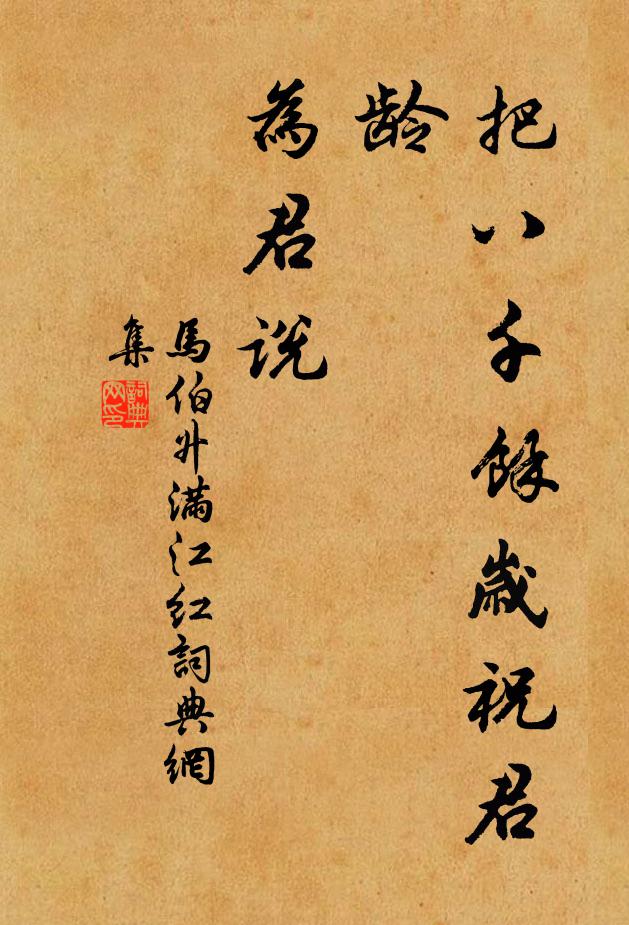 把八千餘歲祝君
龄
為君説
馬伯升滿江红詞典網
集
詞典网印